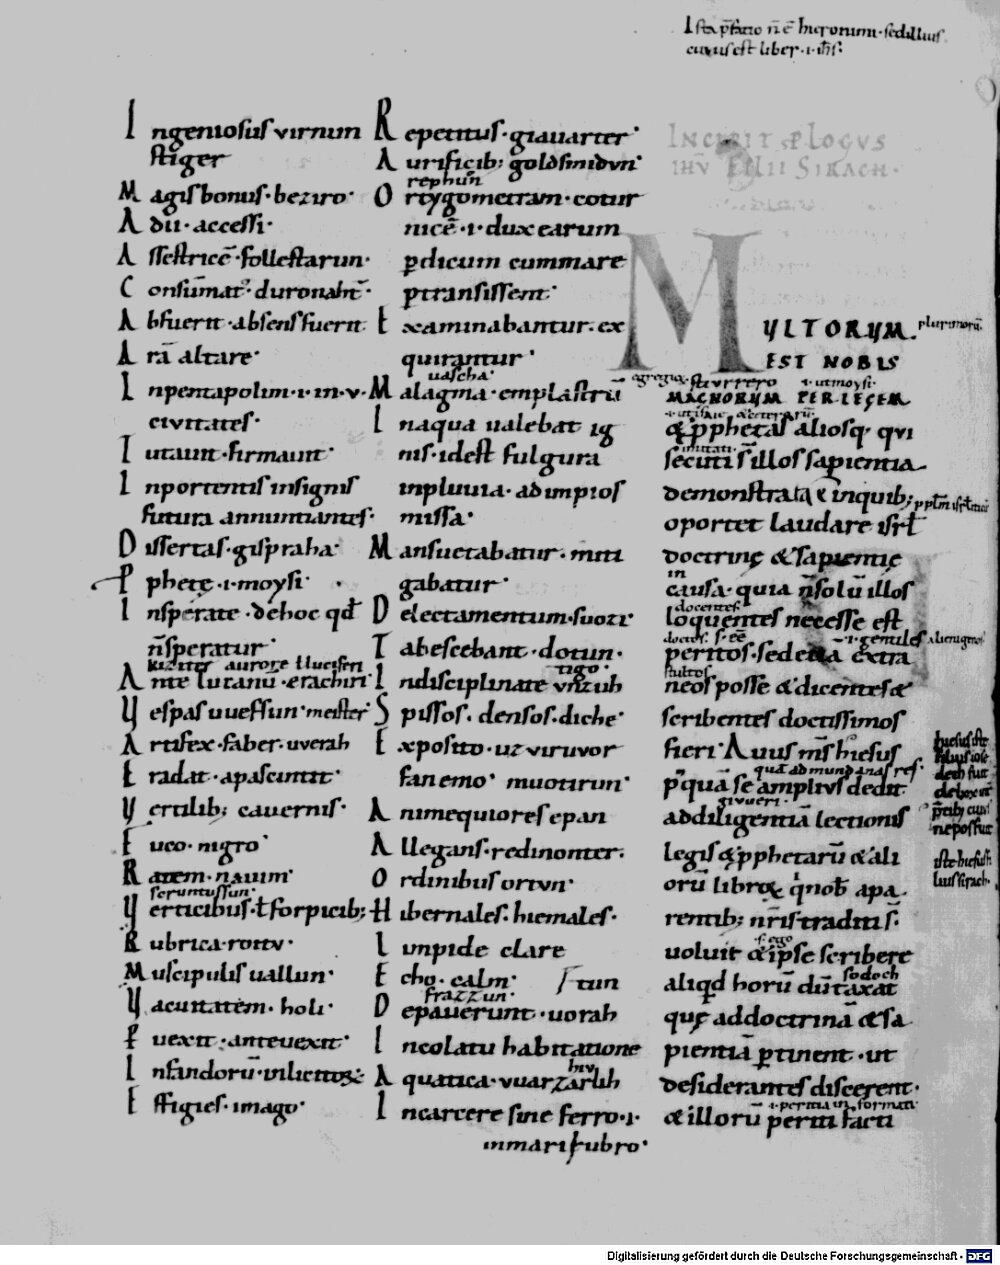 Ista p̄fatio n̄ ē hieronimi · sed illius
cuius est liber · i · ih̄s ·
Ingeniosus virnun
stiger
Magis bonus · beziro ·
Adii · accessi ·
Assestricē · follestarun ·
Consum̄at · duronaht̄ ·
Abfuerit · absens fuerit
Arā altare ·
Inpentapolim · i · in · v ·
civitates ·
Iutauit · firmauit ·
Inportentis insignis
futura annuntiantes ·
Dissertas · gispraha ·
Pphetę · i · moysi ·
Insperate · dehoc qđ
n̄speratur ·
aurore t luciferi
Ante lucanū · erachiri
Yespas uueffun · meister
Artifex · faber · uverah
Eradat · apascintit ·
Yertilib; cavernis ·
Fuco · nigro ·
Ratem · navim ·
seruntussun ·
Yerticibus · t forpicib;
Rubrica · rottv ·
Muscipulis uallun ·
Yacuitatem · holi ·
Euexit · antevexit ·
Infandorū ·
Effigies · imago ·
Repetitus · giavarter ·
Aurificib; goldsmidvn ·
rephun
Ortygometram · cotur
nicē · i · dux earum
pdicum cummare
ptransissent ·
Examinabantur · ex
quirantur ·
uascha ·
Malagma · emplastrū
Inaqua ualebat ig
nis · idest fulgura
inpluuia · ad impios
missa ·
Mansuetabatur · miti
gabatur ·
Delectamentum · suozi ·
Tabescebant · dotun ·
tigo ·
Indisciplinate vnzuh
Spissos · densos · diche ·
Exposito · uz viruvor
fanemo · muotirun ·
Animequiores epan
Allegans · redinonter ·
Ordinibus ortvn ·
Hibernales · hiemales ·
Limpide clare
Echo · calm · tun
frazzun ·
Depauerunt · uorah
Incolatu habitatione
Aquatica · vuarzarlih
Incarcere sine ferro · i ·
inmari rubro ·
INCIPIT PLOGVS
IHV FILII SIRACH ·
MYLTORYM · plurimorū
EST NOBIS
egregiox · i · ut moysi ·
MAGNORYM PER LEGEM
& pphetas aliosq; qvi
imitati
secuti s̄ illos sapientia
demonstrata ē inquib;
oportet laudare isrl̄
doctrinę & sapientię
in
causa · quia n̄solū illos
docentes
loquentes necesse est
doctos · s · eē · i · gentiles alienigenos
peritos · sed etiā extra
stultos
neos posse & dicentes &
scribentes doctissimos
fieri · Auus m̄s hiesus
quā ad mundanas res ·
p̄quā se amplivs dedit
addiligentiā lectionis
legis & pphetarū & ali
orū librox q̇nob̄ apa
rentib; n̄ris traditi s̄ ·
s · ego
voluit & ipse scribere
sodoch
aliqd horū dūtaxat
quę addoctrinā & sa
pientiā ptinent · ut
desiderantes discerent ·
& illorū periti facti
hiesus iste
filius iose
dech fuit
iste hiesus fi
lius sirach ·
Digitalisierung gefördert durch die Deutsche Forschungsgemeinschaft · DFG